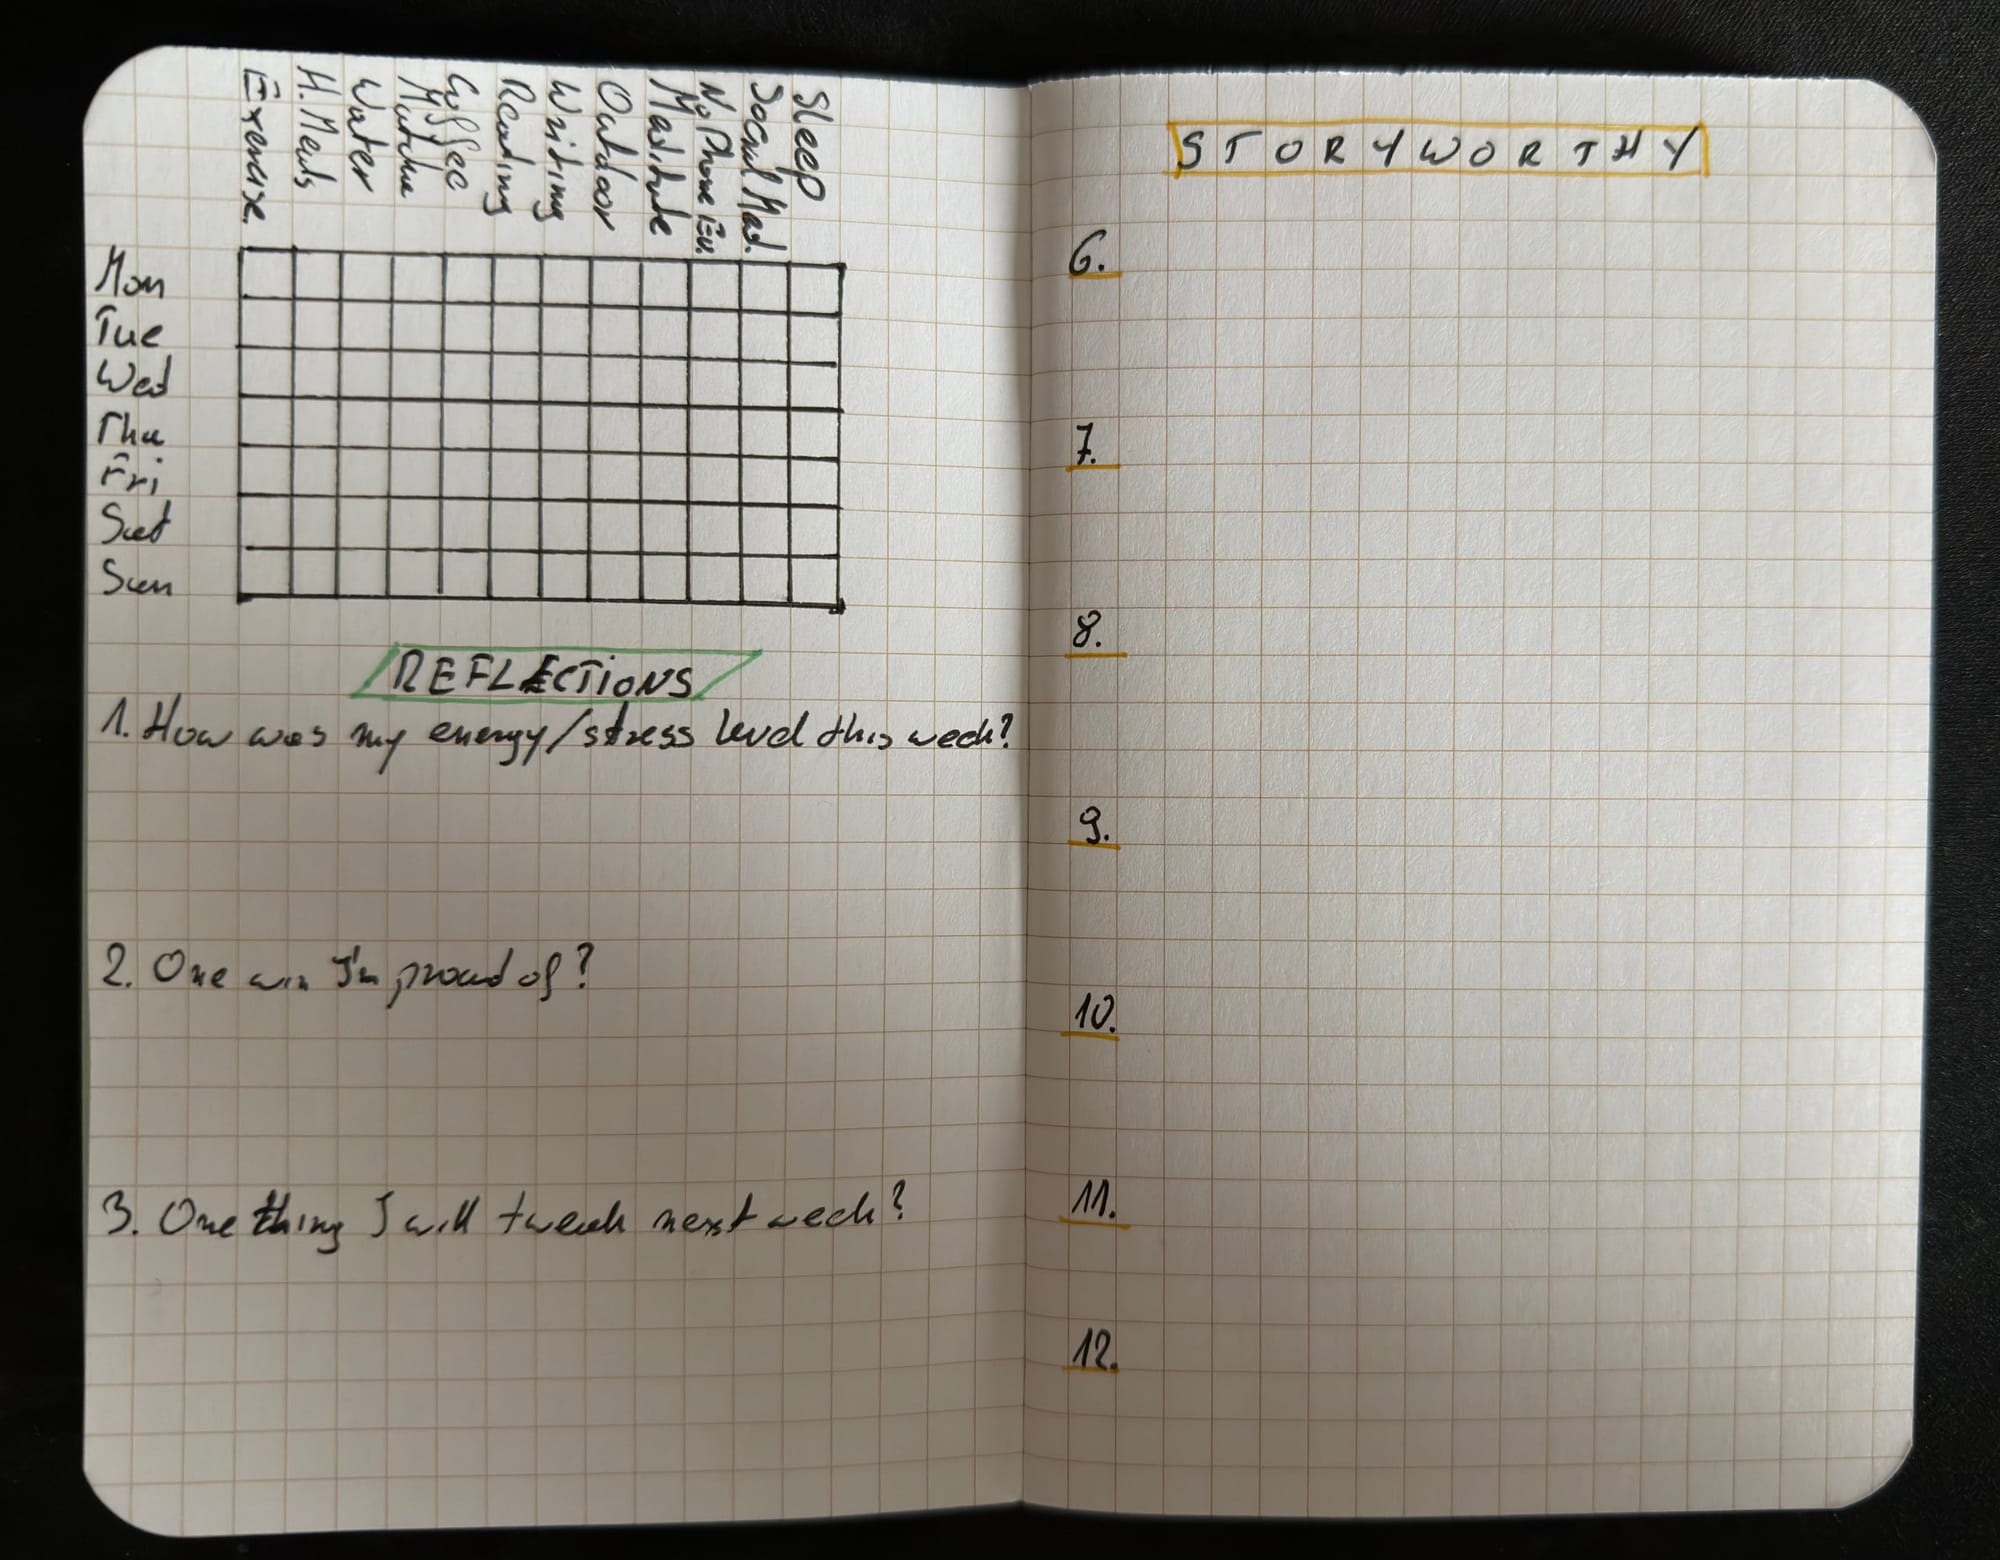 Exercise
H. Meals
Water
Matcha
Coffee
Reading
Writing
Outdoor
No Phone Ev.
Social Med.
Sleep
Mon
Tue
Wed
Thu
Fri
Sat
Sun
REFLECTIONS
1. How was my energy/stress level this week?
2. One win I'm proud of?
3. One thing I will tweak next week?
STORYWORTHY
6.
7.
8.
9.
10.
11.
12.